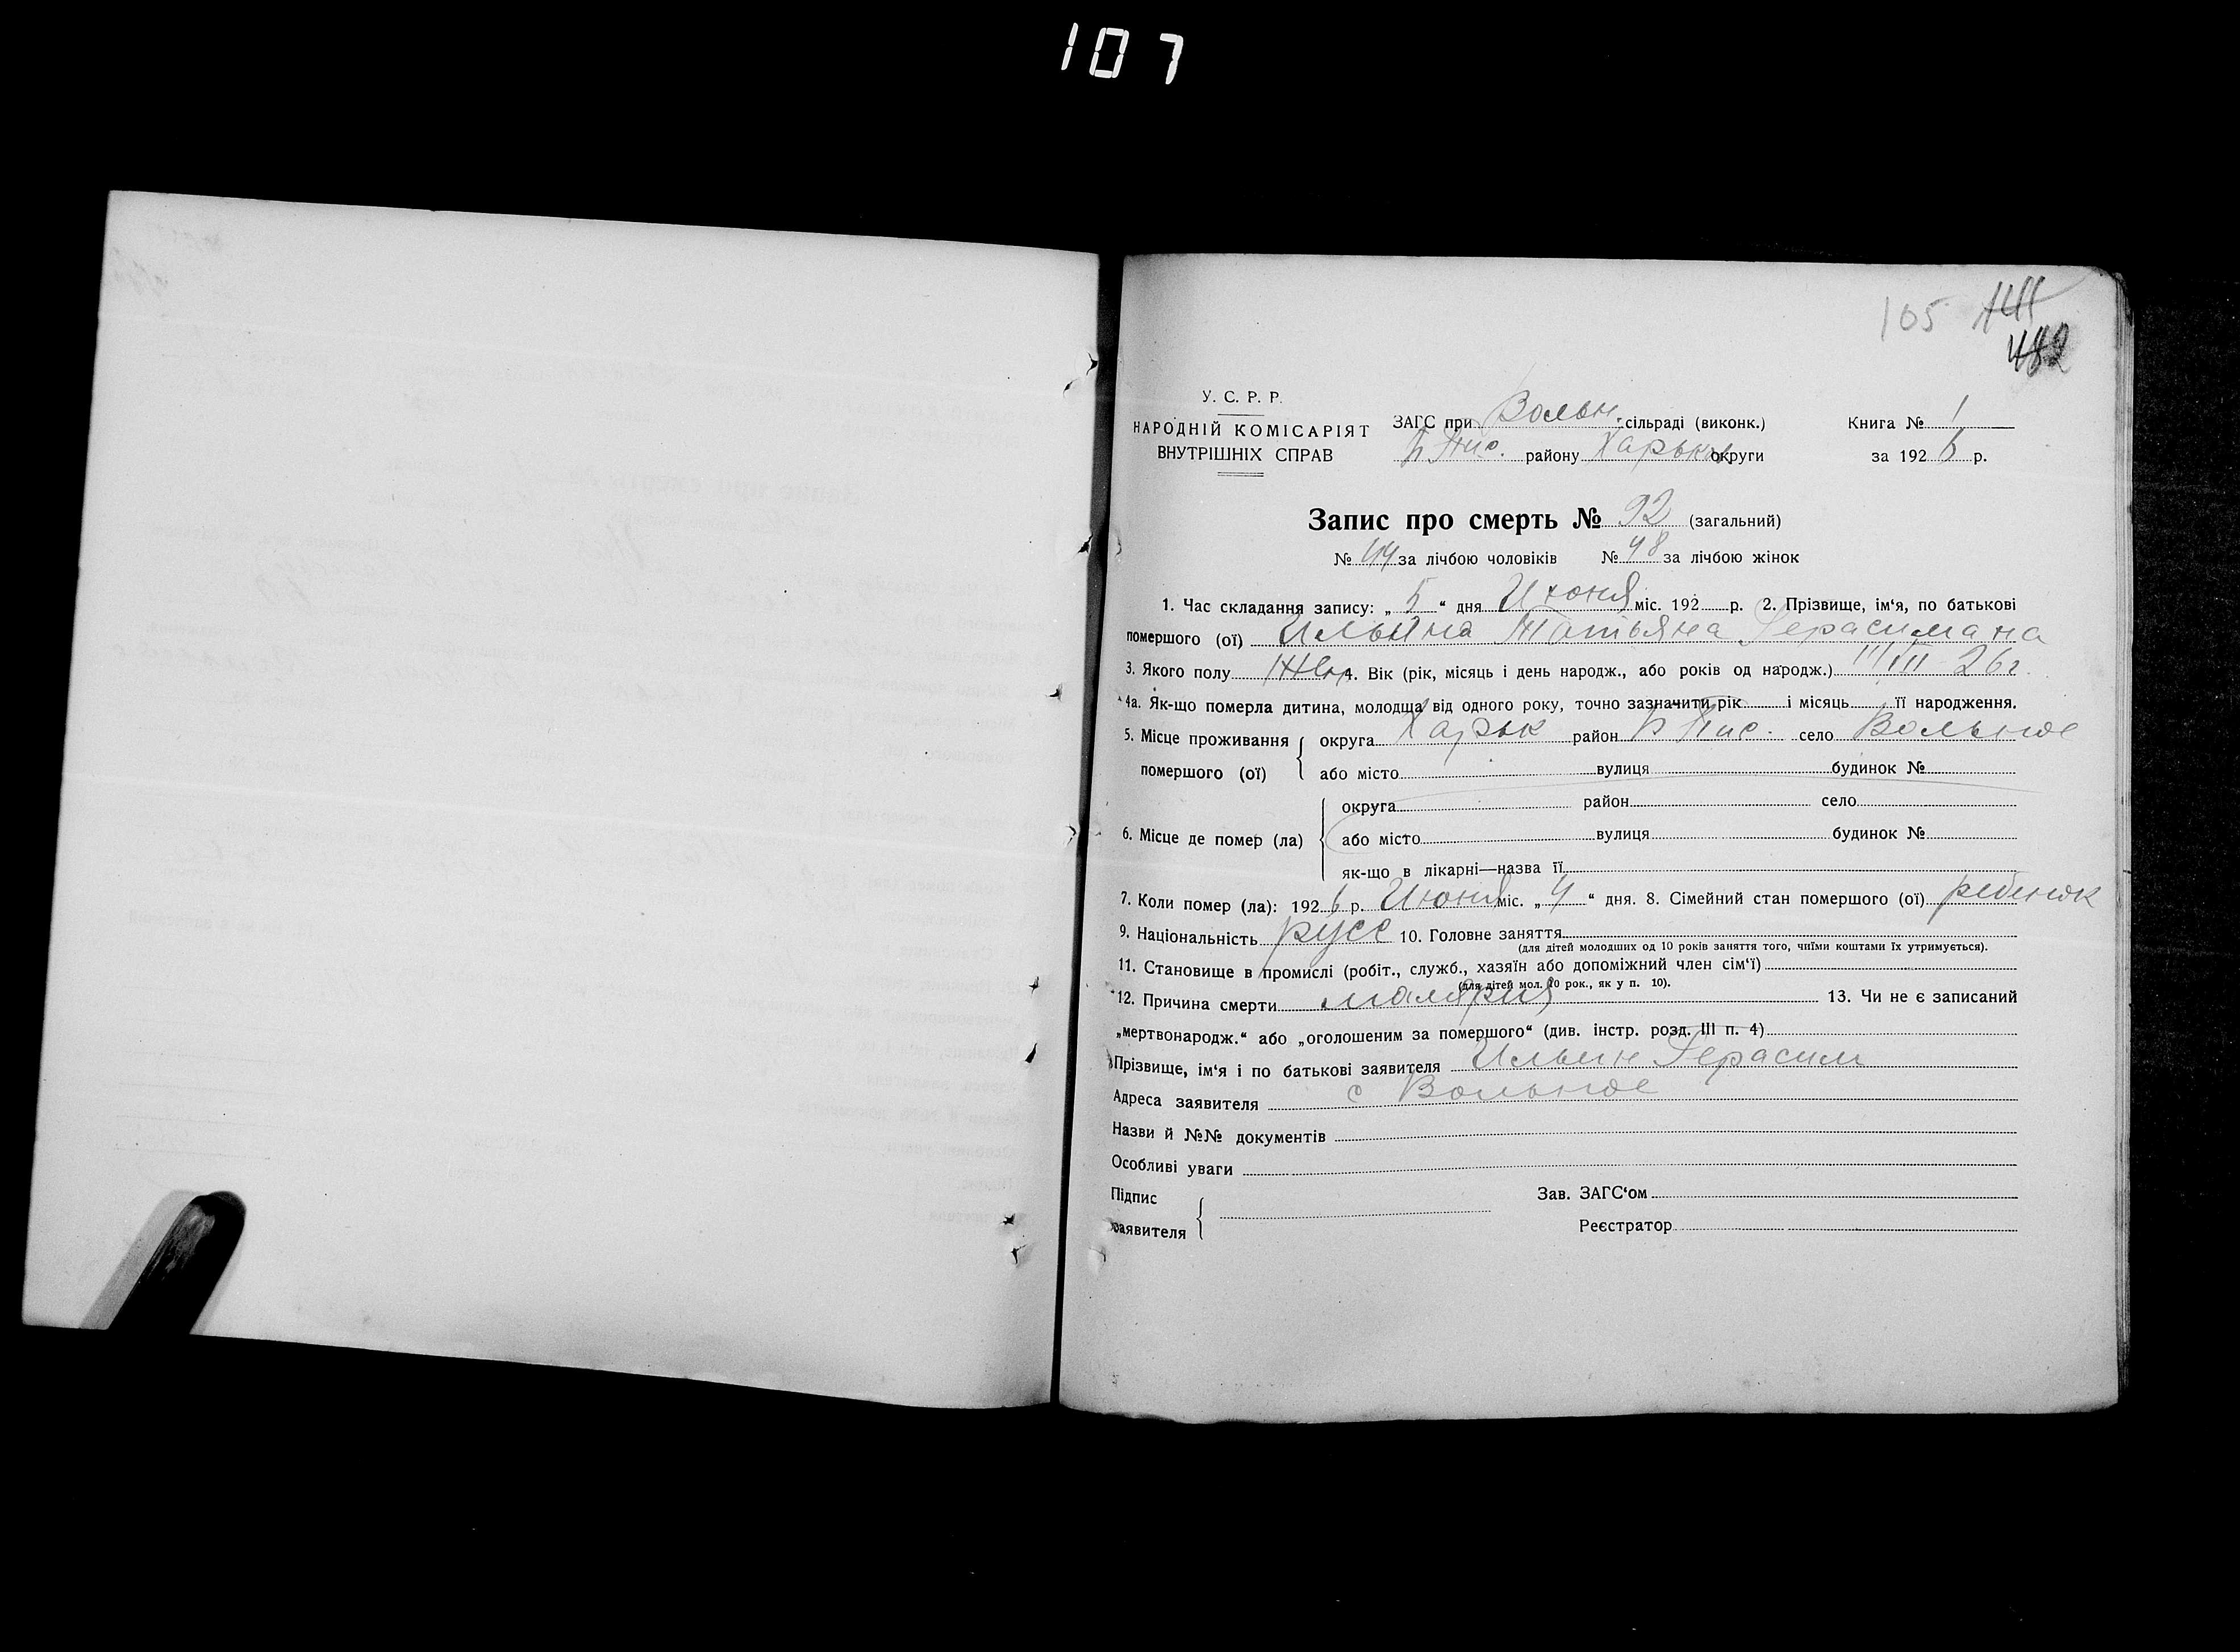 107
105
482
У. С. Р. Р.
НАРОДНІЙ КОМІСАРІЯТ
ВНУТРІШНІХ СПРАВ
ЗАГС при Вольн. сільраді (виконк.)
Б Пис. району Харьков округи
Книга № 1
за 1926 р.
Запис про смерть № 92 (загальний)
№ 44 за лічбою чоловіків № 48 за лічбою жінок
1. Час складання запису: „5“ дня Июня міс. 192 р. 2. Прізвище, ім‘я, по батькові
помершого (ої) Ильина Татьяна Герасимана
3. Якого полу Жен 4. Вік (рік, місяць і день народж., або років од народж.) 26г
4а. Як-що померла дитина, молодща від одного року, точно зазначити рік і місяць її народження.
5. Місце проживання помершого (ої) округа Харьк район Б Пис. село Вольное
або місто вулиця будинок №
6. Місце де помер (ла) округа район село
або місто вулиця будинок №
як-що в лікарні—назва її
7. Коли помер (ла): 1926 р. Июня міс. „4“ дня. 8. Сімейний стан помершого (ої) ребенок
9. Національність русс 10. Головне заняття
(для дітей молодших од 10 років заняття того, чиїми коштами їх утримується).
11. Становище в промислі (робіт., служб., хазяїн або допоміжний член сім‘ї)
(для дітей мол. 10 рок., як у п. 10).
12. Причина смерти малярия 13. Чи не є записаний
„мертвонародж.“ або „оголошеним за помершого“ (див. інстр. розд. III п. 4)
Прізвище, ім‘я і по батькові заявителя Ильин Герасим
Адреса заявителя с Вольное
Назви й №№ документів
Особливі уваги
Підпис заявителя
Зав. ЗАГС‘ом
Реєстратор